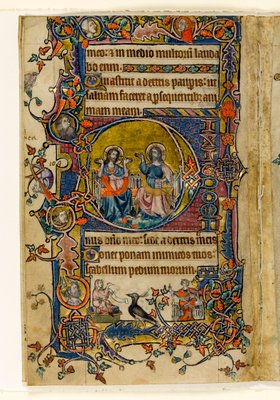 meo: & in medio multorum lauda
bo eum.
Quia astitit a dextris paupis: ut
saluam faceret a psequentib: ani
mam meam.
DIXIT DOMI
nus dño meo: sede a dextris meis
Donec ponam inimicos tuos
scabellum pedum tuorum.